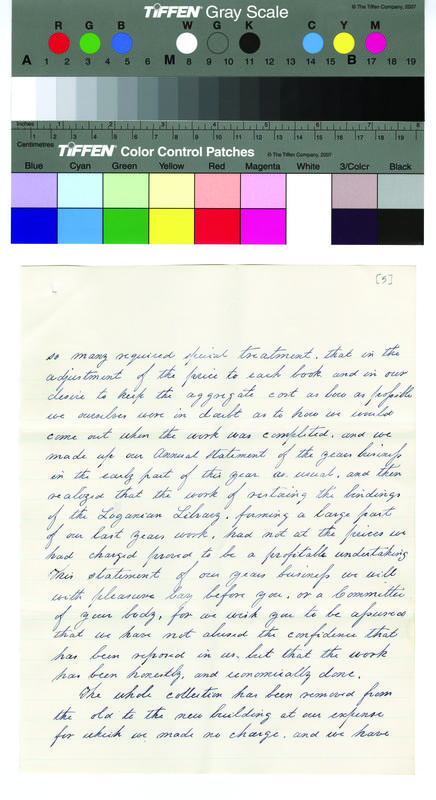 TIFFEN Gray Scale © The Tiffen Company, 2007
R G B W G K C Y M
A 1 2 3 4 5 6 M 8 9 10 11 12 13 14 15 B 17 18 19
Inches 1 2 3 4 5 6 7 8
Centimetres 1 2 3 4 5 6 7 8 9 10 11 12 13 14 15 16 17 18 19
TIFFEN Color Control Patches © The Tiffen Company, 2007
Blue Cyan Green Yellow Red Magenta White 3/Color Black
[5]
so many required special treatment, that in the
adjustment of the price to each book and in our
desire to keep the aggregate cost as low as possible
we ourselves were in doubt as to how we would
come out when the work was completed, and we
made up our Annual Statement of the years business
in the early part of this year as usual, and then
realized that the work of restoring the bindings
of the Loganian Library, forming a large part
of our last years work, had not at the prices we
had charged proved to be a profitable undertaking
This statement of our years business we will
with pleasure lay before you, or a Committee
of your body, for we wish you to be assured
that we have not abused the confidence that
has been reposed in us, but that the work
has been honestly, and economically done.
The whole collection has been removed from
the old to the new building at our expense
for which we made no charge, and we have